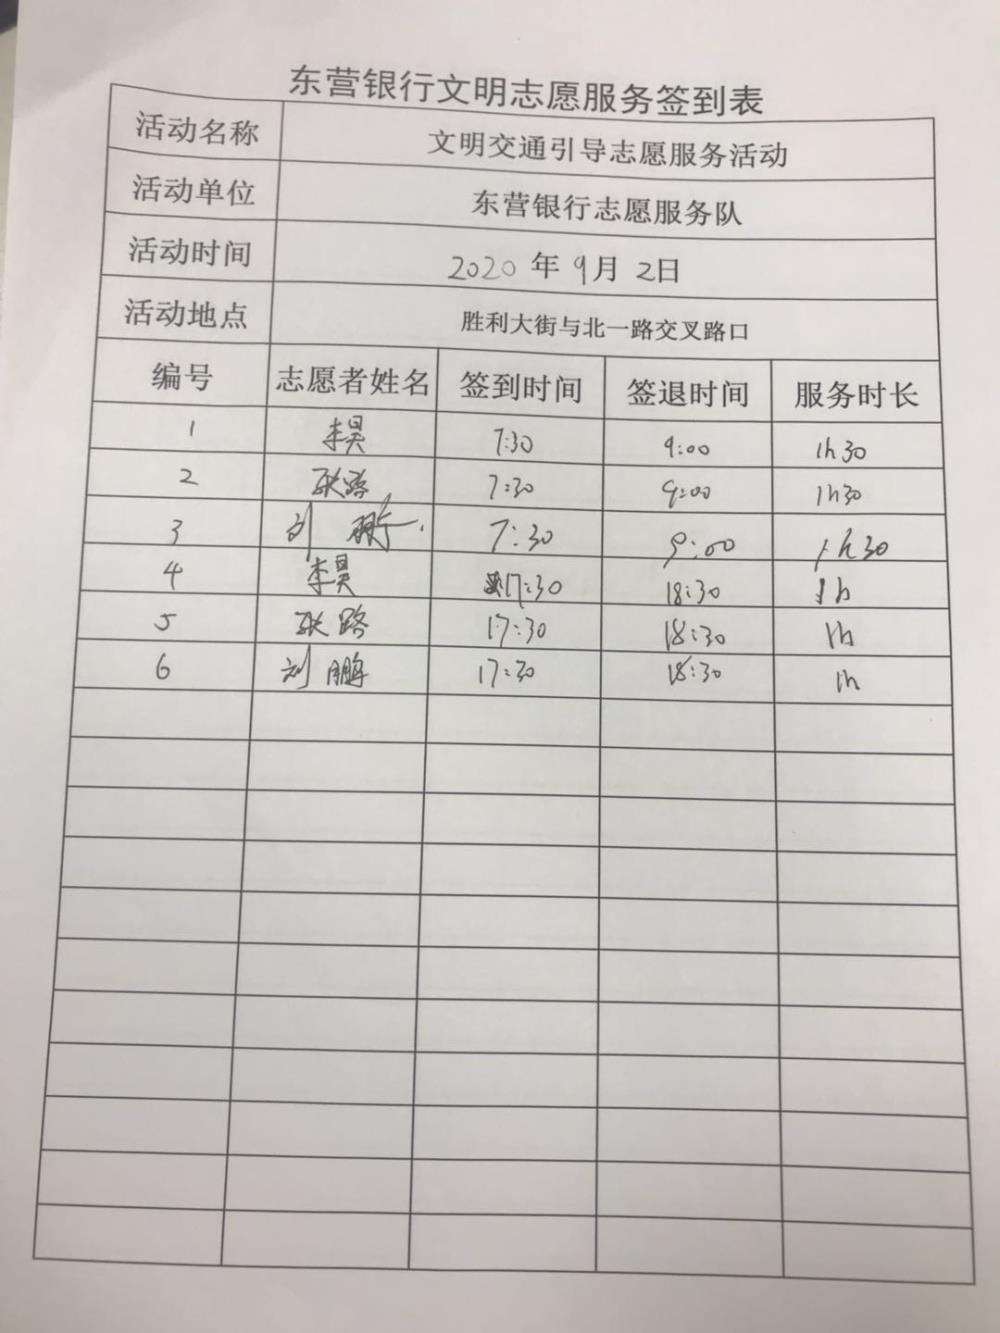 东营银行文明志愿服务签到表
活动名称 文明交通引导志愿服务活动
活动单位 东营银行志愿服务队
活动时间 2020年9月2日
活动地点 胜利大街与北一路交叉路口
编号 志愿者姓名 签到时间 签退时间 服务时长
1 李昊 7:30 9:00 1h30
2 耿路 7:30 9:00 1h30
3 刘鹏 7:30 9:00 1h30
4 李昊 17:30 18:30 1h
5 耿路 17:30 18:30 1h
6 刘鹏 17:30 18:30 1h